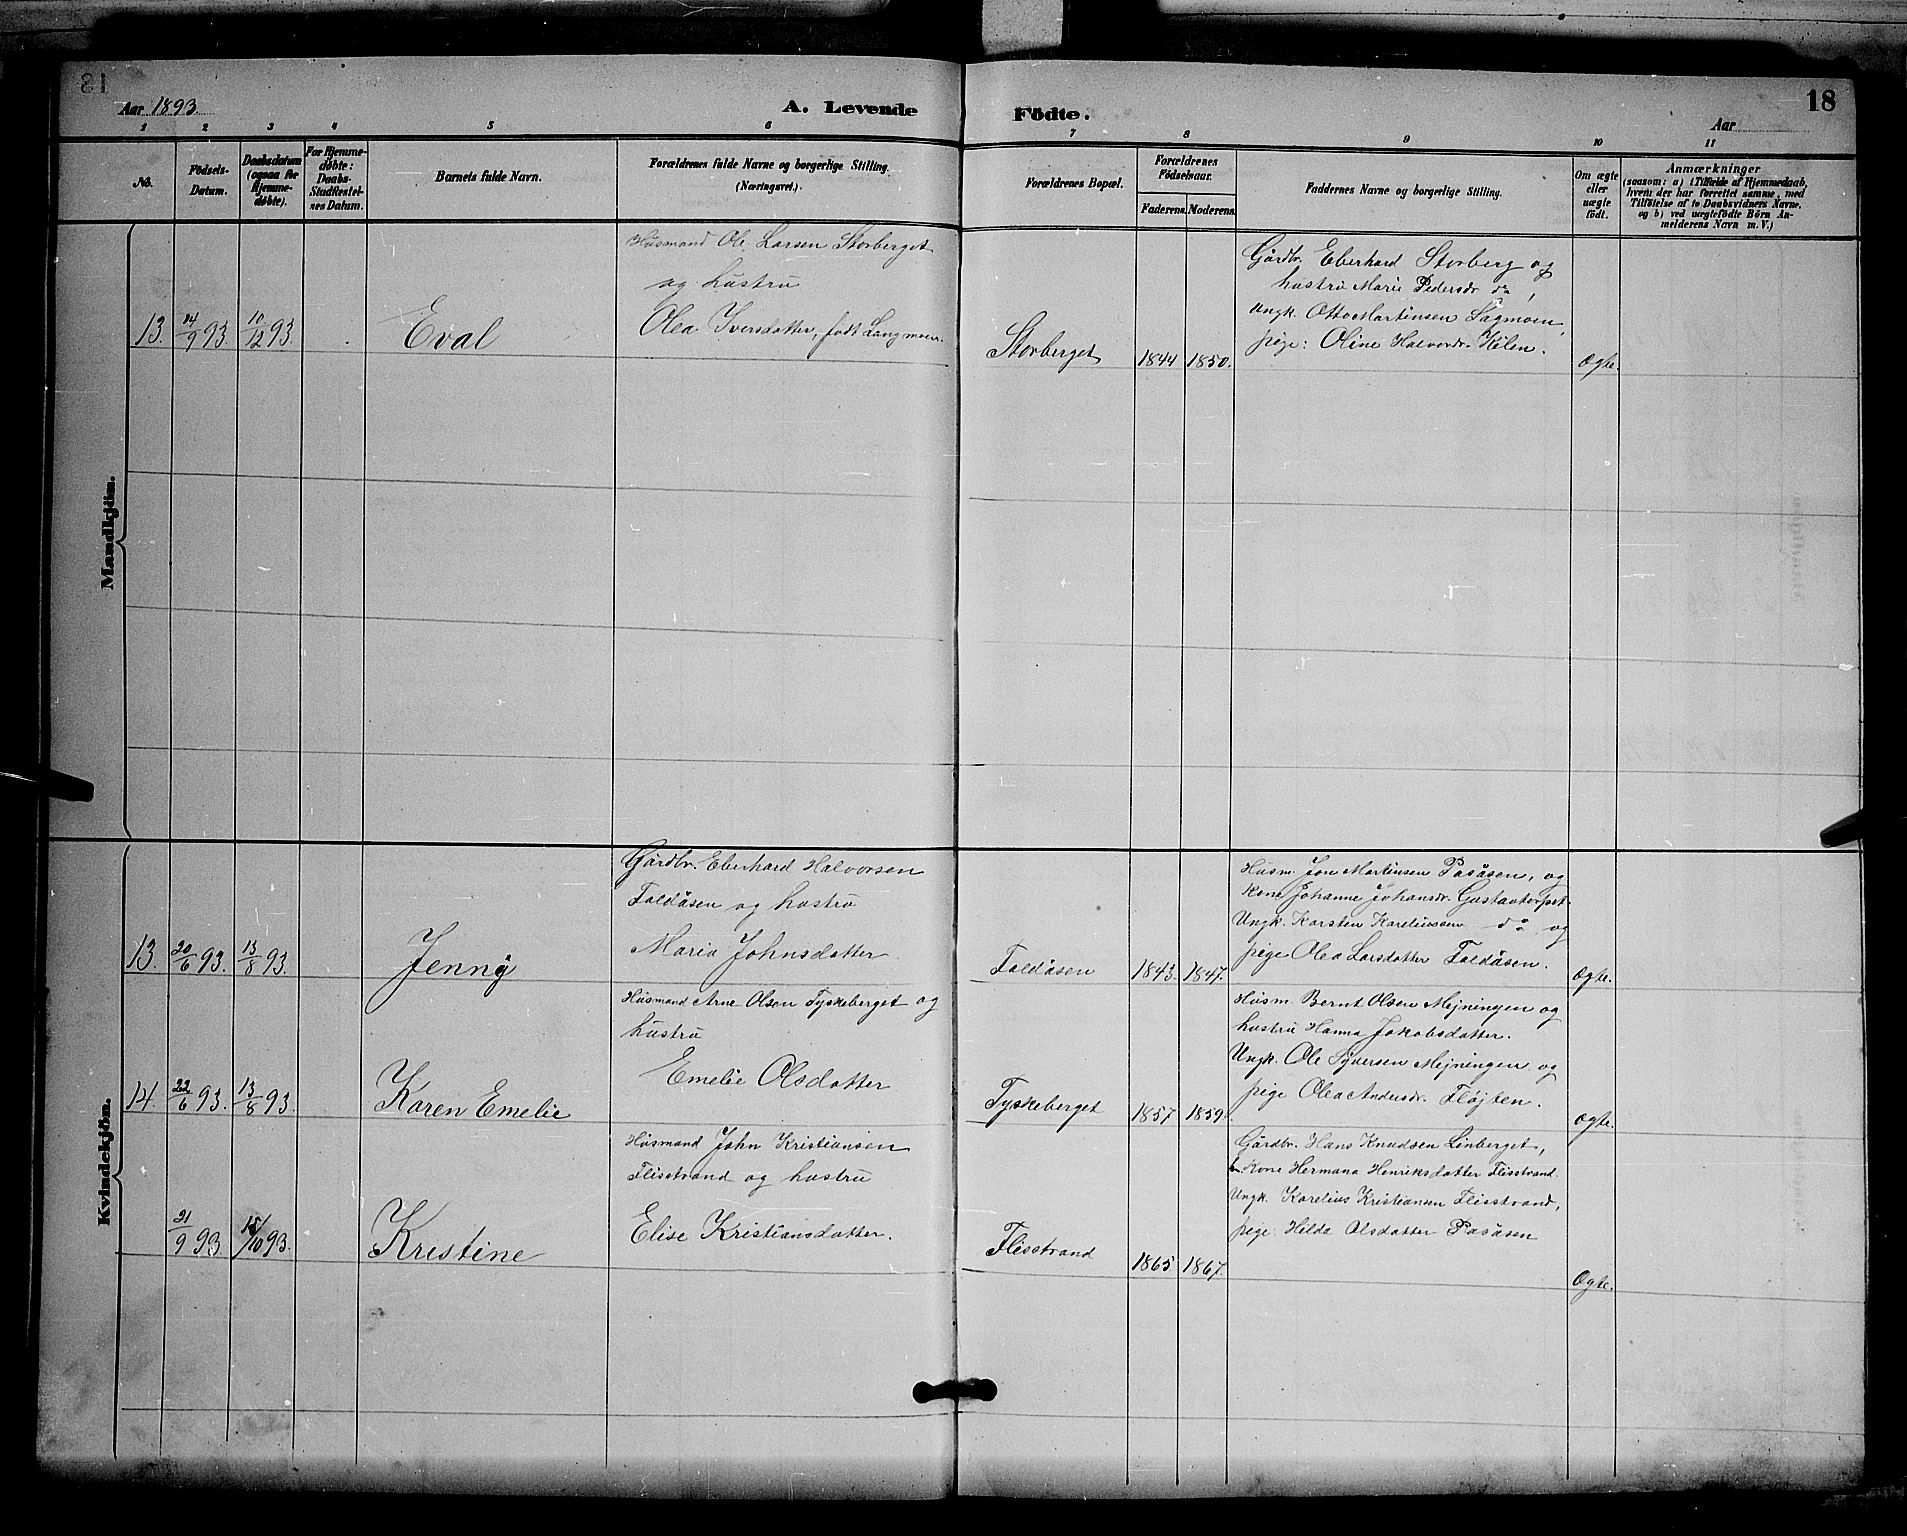 Aar 1893.
A. Levende Födte.
18
Aar
1 2 3 4 5 6 7 8 9 10 11
No.
Födsels-Datum.
Daabsdatum (ogsaa for Hjemme-döbte).
For Hjemme-döbte: Daabs-Stadfæstel-nes Datum.
Barnets fulde Navn.
Forældrenes fulde Navne og borgerlige Stilling. (Næringsvei.)
Forældrenes Bopæl.
Forældrenes Födselsaar.
Faderens. Moderens.
Faddernes Navne og borgerlige Stilling.
Om ægte eller uægte födt.
Anmærkninger
(saasom: a) i Tilfælde af Hjemmedaab, hvem der har forrettet samme, med Tilföielse af to Daabsvidners Navne, og b) ved uægtefödte Börn An-melderens Navn m. V.)
Mandkjön.
13. 14/9 93. 10/12 93. Eval
Husmand Ole Larsen Storberget
og hustru
Olea Iversdatter, født Langmoen.
Storberget 1844 1850.
Gårdbr. Eberhard Storberg og
hustru Marie Pedersdr do,
Ungk. Otto Martinsen Sagmoen,
pige: Oline Halvordr. Kilen.
Ægte.
Kvindekjön.
13. 20/6 93. 13/8 93. Jenny
Gårdbr. Eberhard Halvorsen
Faldåsen og hustru
Maria Johnsdatter
Faldåsen 1843. 1847.
Husm. Jon Martinsen Pasåsen, og
Kone Johanne Johansdr. Gustavtorpet.
Ungk. Karsten Kareliussen do og
pige Olea Larsdatter Faldåsen.
Ægte.
14. 22/6 93. 13/8 93. Karen Emelie
Husmand Arne Olsen Tyskeberget og
hustru
Emelie Olsdatter
Tyskeberget 1857 1859.
Husm. Bernt Olsen Mejningen og
hustru Hanna Jakobsdatter.
Ungk. Ole Syversen Mejningen og
pige Olea Andersdr. Fløjten.
Ægte.
21/9 93 15/10 93. Kristine
Husmand John Kristiansen
Flisstrand og hustru
Elise Kristiansdatter.
Flisstrand 1865. 1867.
Gårdbr. Hans Knudsen Linberget,
Kone Hermana Henriksdatter Flisstrand.
Ungk. Karelius Kristiansen Flisstrand,
pige Hilda Olsdatter Pasåsen
Ægte.